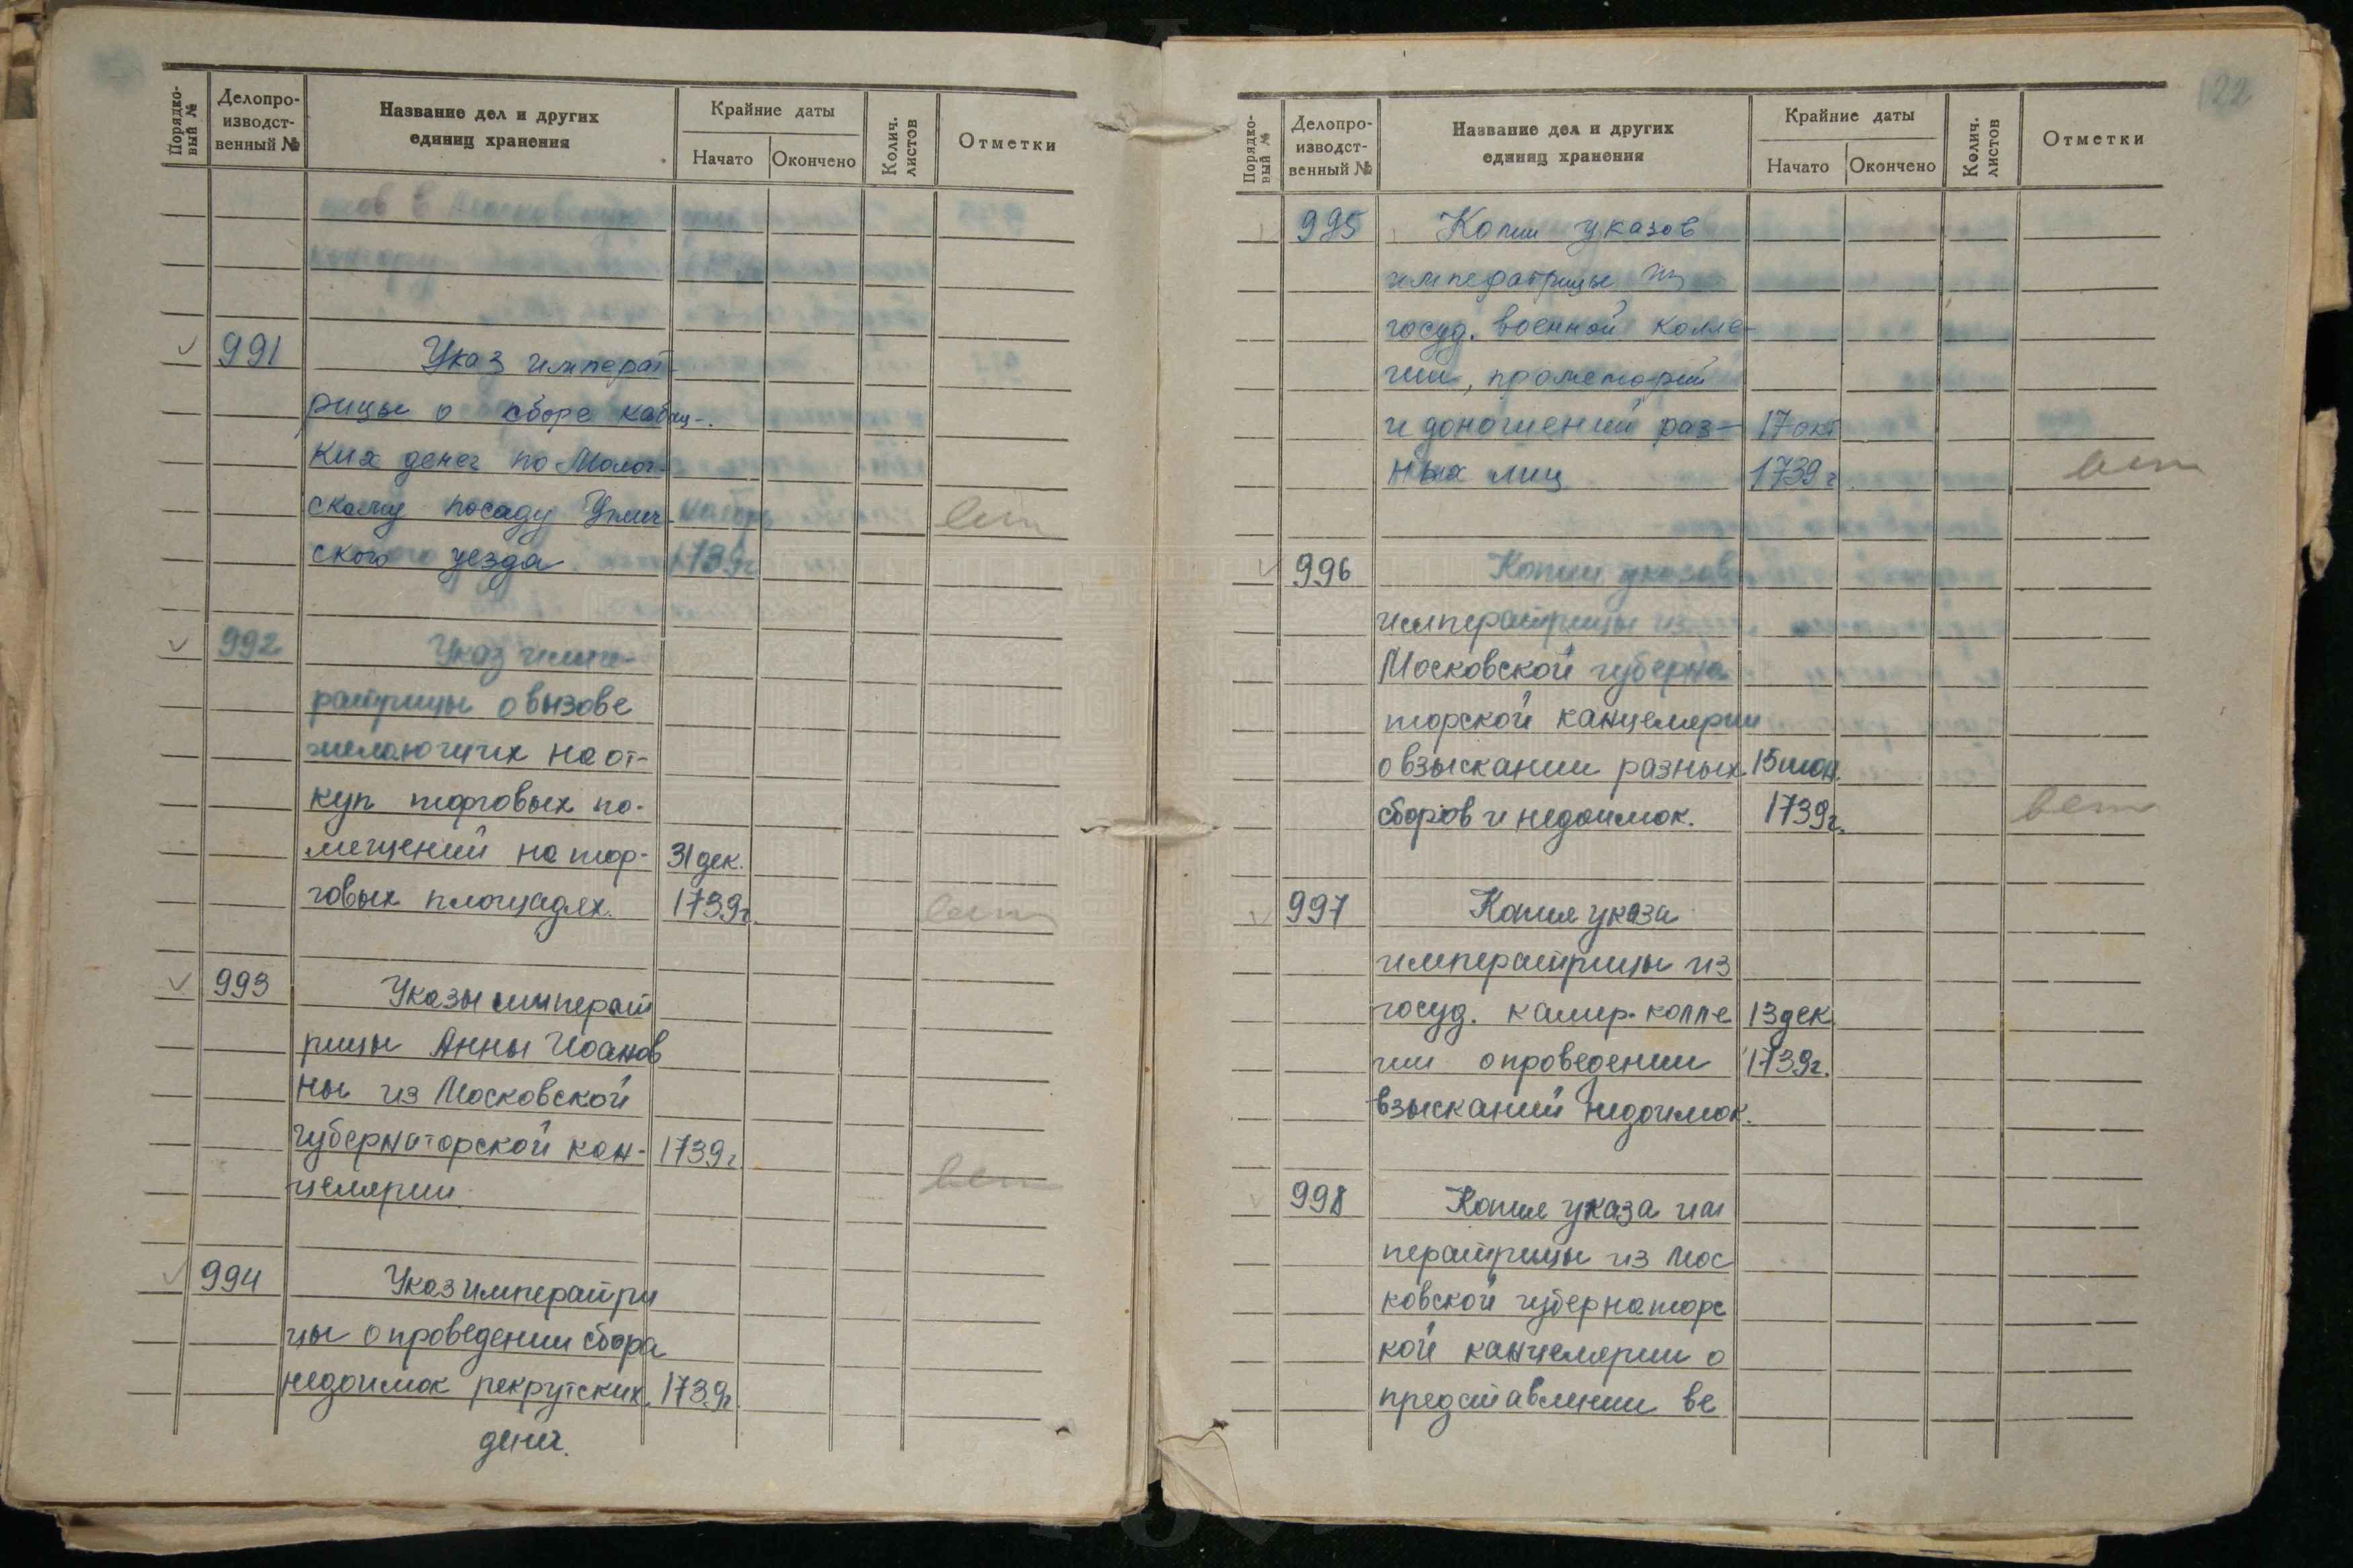 Порядко-
вый №
Делопро-
изводст-
венный №
Название дел и других
единиц хранения
Крайние даты
Начато
Окончено
Колич.
листов
Отметки
991
Указ императ-
рицы о сборе кабац-
ких денег по Молог-
скому посаду Углич-
ского уезда
1739г
вет
992
Указ импе-
ратрицы о вызове
желающих на от-
куп торговых по-
мещений на тор-
говых площадях.
31 дек.
1739г.
вет
993
Указы императ
рицы Анны Иоанов
ны из Московской
губернаторской кан-
целярии
1739г
вет
994
Указ императри
цы о проведении сбора
недоимок рекрутских
денег.
1739г.
122
Порядко-
вый №
Делопро-
изводст-
венный №
Название дел и других
единиц хранения
Крайние даты
Начато
Окончено
Колич.
листов
Отметки
995
Копии указов
императрицы из
госуд. военной колле-
гии, промеморий
и доношений раз-
ных лиц
17 окт
1739г
вет
996
Копии указов
императрицы из
Московской губерна
торской канцелярии
о взыскании разных
сборов и недоимок.
15 июн.
1739г.
вет
997
Копия указа
императрицы из
госуд. камер-колле
гии о проведении
взысканий недоимок.
13 дек
1739г.
998
Копия указа им
ператрицы из Мос
ковской губернаторс
кой канцелярии о
представлении ве